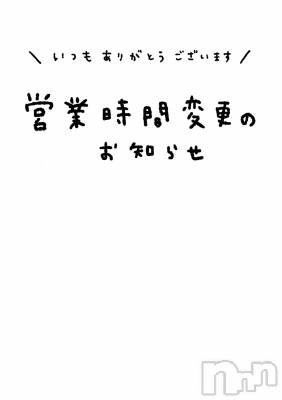 \ いつも ありがとう ございます /
営業時間変更の
お知らせ
nnn